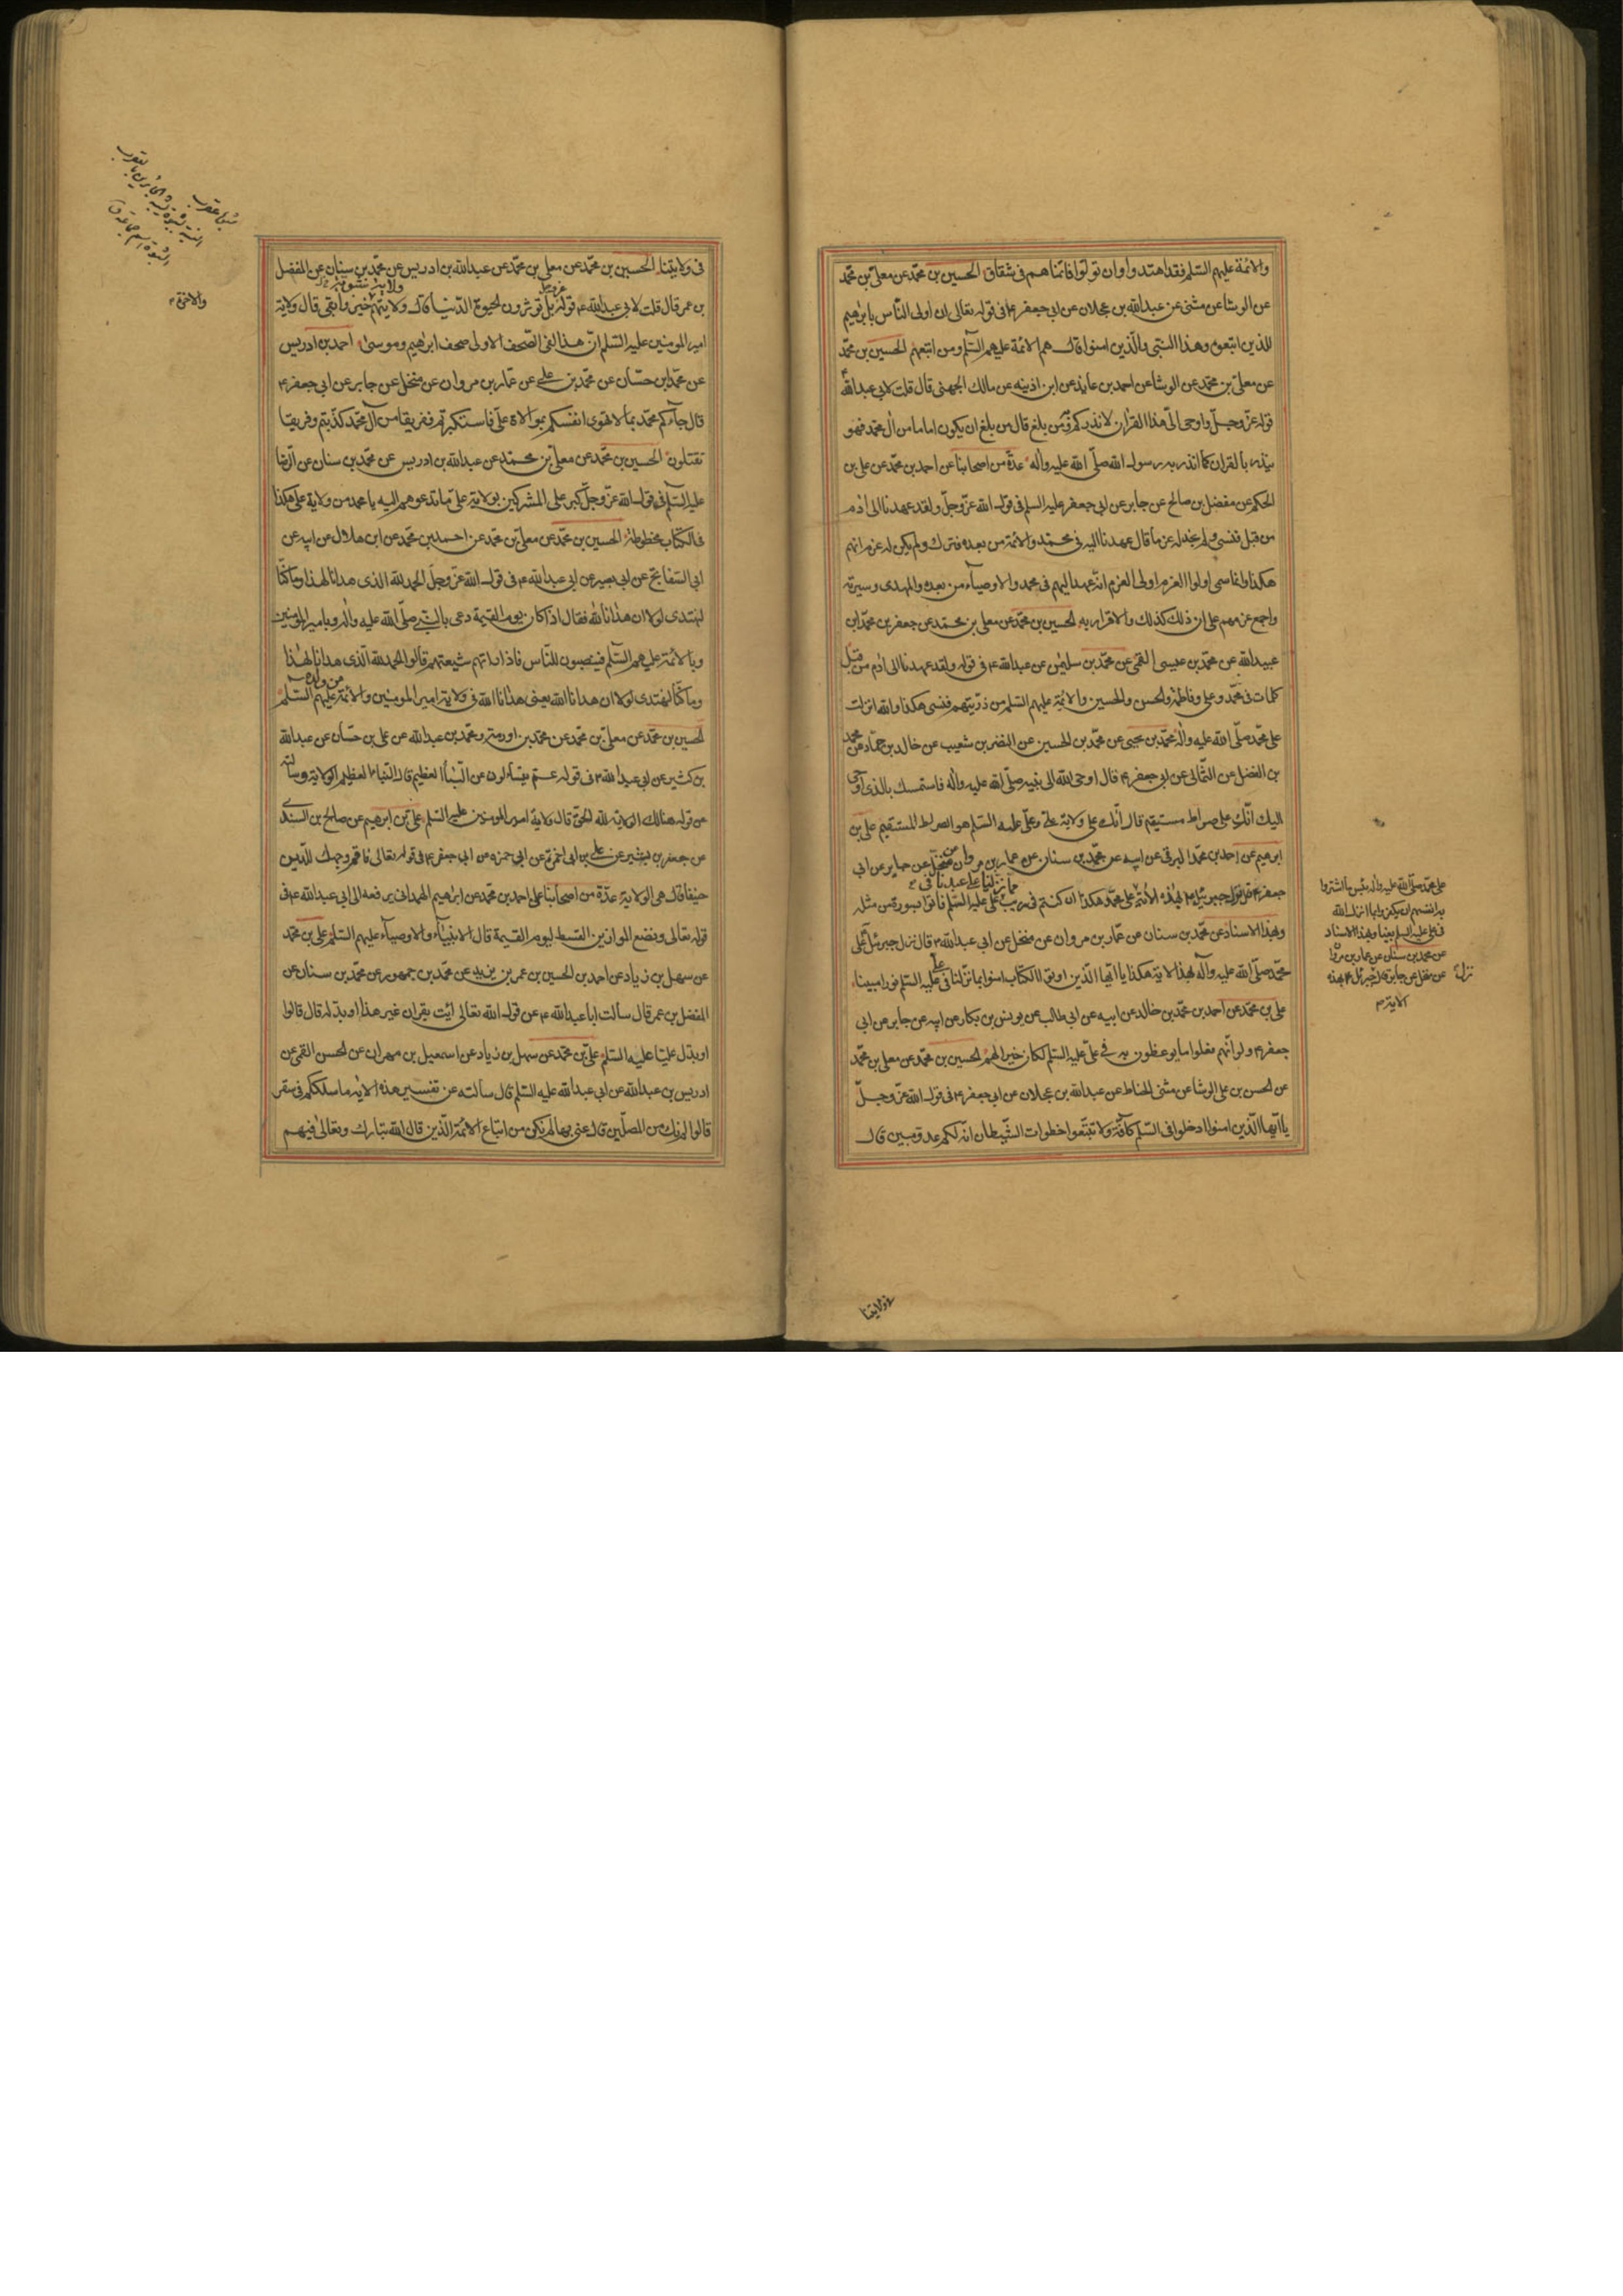 والائمة عليهم السلم فقد اهتدوا وان تولوا فانما هم في شقاق الحسين بن محمد عن معلى بن محمد
عن الوشا عن مثنى عن عبدالله بن عجلان عن ابي جعفر ع في قوله تعالى ان اولى الناس بابرهيم
للذين اتبعوه وهذا النبي والذين امنوا قال هم الائمة عليهم السلم ومن اتبعهم الحسين بن محمد
عن معلى بن محمد عن الوشا عن احمد بن عايذ عن ابن اذينه عن مالك الجهني قال قلت لابي عبدالله ع
قوله عز وجل واوحى الى هذا القران لانذركم به ومن بلغ قال من بلغ ان يكون اماما من ال محمد فهو
ينذر بالقران كما انذر به رسول الله صلى الله عليه واله عدة من اصحابنا عن احمد بن محمد عن على بن
الحكم عن مفضل بن صالح عن جابر عن ابي جعفر عليه السلم في قول الله عز وجل ولقد عهدنا الى ادم
من قبل فنسي ولم نجد له عزما قال عهدنا اليه في محمد والائمة من بعده فترك ولم يكن له عزم انهم
هكذا وانما سمى اولوا العزم اولى العزم انه عهد اليهم في محمد والاوصياء من بعده والمهدى وسيرته
واجمع عزمهم على ان ذلك كذلك والاقرار به الحسين بن محمد عن معلى بن محمد عن جعفر بن محمد ابن
عبيدالله عن محمد بن عيسى القمى عن محمد بن سليمن عن عبدالله ع في قوله ولقد عهدنا الى ادم من قبل
كلمات في محمد وعلى وفاطمة والحسن والحسين والائمة عليهم السلم من ذريتهم فنسى هكذا والله انزلت
على محمد صلى الله عليه واله محمد بن يحيى عن محمد بن الحسين عن النضر بن شعيب عن خالد بن حماد عن محمد
بن الفضل عن الثمالى عن ابي جعفر ع قال اوحى الله الى نبيه صلى الله عليه واله فاستمسك بالذى اوحى
اليك انك على صراط مستيقم قال انك على ولاية على وعلى عليه السلم هو الصراط المستقيم على بن
ابرهيم عن احمد بن محمد البرقى عن ابيه عن محمد بن سنان عن عمار بن مروان عن منخل عن جابر عن ابي
جعفر ع قال نزل جبرئيل ع بهذه الاية على محمد هكذا ان كنتم في ريب مما نزلنا على عبدنا في على عليه السلم فاتوا بسورة من مثله
وبهذا الاسناد عن محمد بن سنان عن عمار بن مروان عن منخل عن ابي عبدالله ع قال نزل جبرئيل على
محمد صلى الله عليه واله بهذا الاية هكذا يا ايها الذين اوتوا الكتاب امنوا بما نزلنا في على عليه السلم نورا مبينا
على بن محمد عن احمد بن محمد بن خالد عن ابيه عن ابي طالب عن يونس بن بكار عن ابيه عن جابر عن ابي
جعفر ع ولو انهم فعلوا ما يوعظون به في على عليه السلم لكان خيرا لهم الحسين بن محمد عن معلى بن محمد
عن الحسن بن على الوشا عن مثنى الحناط عن عبدالله بن عجلان عن ابي جعفر ع في قول الله عز وجل
يا ايها الذين امنوا ادخلوا في السلم كافة ولا تتبعوا خطوات الشيطان انه لكم عدو مبين قال
على محمد صلى الله عليه واله بئس ما اشتروا
به انفسهم ان يكفروا بما انزل الله
في على عليه السلم بغيا وبهذا الاسناد
عن محمد بن سنان عن عمار بن مروا
عن منخل عن جابر قال نزل جبرئيل ع بهذه
الاية
في ولايتنا
في ولايتنا الحسين بن محمد عن معلى بن محمد عن عبدالله بن ادريس عن محمد بن سنان عن المفضل
بن عمر قال قلت لابي عبدالله ع قوله عز وجل بل تؤثرون الحيوة الدنيا قال ولايتهم خير وابقى قال ولاية
امير المومنين عليه السلم ان هذا لفى الصحف الاولى صحف ابرهيم وموسى احمد بن ادريس
عن محمد ابن حسان عن محمد بن على عن عمار بن مروان عن منخل عن جابر عن ابي جعفر ع
قال جاءكم محمد بما لا تهوى انفسكم بموالاة على فاستكبرتم ففريقا من آل محمد كذبتم وفريقا
تقتلون الحسين بن محمد عن معلى بن محمد عن عبدالله بن ادريس عن محمد بن سنان عن الرضا
عليه السلم في قول الله عز وجل كبر على المشركين بولاية على ما تدعوهم اليه يا محمد من ولاية على هكذا
في الكتاب مخطوطة الحسين بن محمد عن معلى بن محمد عن احمد بن محمد عن ابن هلال عن ابيه عن
ابي السفاتج عن ابي بصير عن ابي عبدالله ع في قول الله عز وجل الحمد لله الذى هدانا لهذا وما كنا
لنهتدى لولا ان هدانا الله فقال اذا كان يوم القيمة دعى بالنبي صلى الله عليه واله وبامير المومنين
وبالائمة عليهم السلم فينصبون للناس فاذا راتهم شيعتهم قالوا الحمد لله الذى هدانا لهذا
وما كنا لنهتدى لولا ان هدانا الله يعنى هدانا الله في ولاية امير المومنين والائمة من ولده عليهم السلم
الحسين بن محمد عن معلى بن محمد عن محمد بن اورمه ومحمد بن عبدالله عن على بن حسان عن عبدالله
بن كثير عن ابي عبدالله ع في قوله عم يتساءلون عن النبأ العظيم قال النبأ العظيم الولاية وسألته
عن قوله هنالك الولاية لله الحق قال ولاية امير المومنين عليه السلم على بن ابرهيم عن صالح بن السندى
عن جعفر بن بشير عن على بن ابي حمزة عن ابي جعفر ع في قوله تعالى فاقم وجهك للدين
حنيفا قال هى الولاية عدة من اصحابنا عن احمد بن محمد عن ابرهيم الهمدانى يرفعه الى ابي عبدالله ع في
قوله تعالى ونضع الموازين القسط ليوم القيمة قال الانبياء والاوصياء عليهم السلم على بن محمد
عن سهل بن زياد عن احمد بن الحسين بن عمر بن يزيد عن محمد بن جمهور عن محمد بن سنان عن
المفضل بن عمر قال سألت ابا عبدالله ع عن قول الله تعالى ائت بقران غير هذا او بدله قال قالوا
او بدل عليا عليه السلم على بن محمد عن سهل بن زياد عن اسمعيل بن مهران عن الحسن القمى عن
ادريس بن عبدالله عن ابي عبدالله عليه السلم قال سالته عن تفسير هذه الاية ما سلككم في سقر
قالوا لم نك من المصلين قال عنى بها لم نكن من اتباع الائمة الذين قال الله تبارك وتعالى فيهم
والاخرة